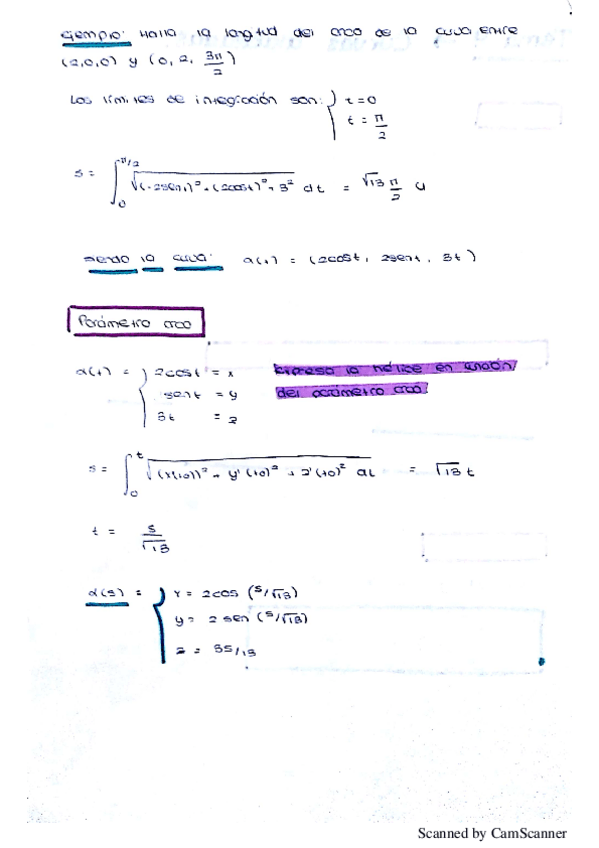 Ejemplo: Halla la longitud del arco de la curva entre
(2,0,0) y (0, 2, 3π/2)
Los límites de integración son: { t=0
t = π/2
s = ∫₀^π/2 √(-2sent)² + (2cost)² + 3² dt = √13 π/2 u
siendo la curva: α(t) = (2cost, 2sent, 3t)
Parámetro arco
α(t) = { 2cost = x
sent = y
3t = z
Expresa la hélice en función
del parámetro arco
s = ∫₀^t √(x'(t))² + y'(t)² + z'(t)² dt = √13 t
t = s/√13
α(s) = { x = 2cos (s/√13)
y = 2 sen (s/√13)
z = 3s/13
Scanned by CamScanner